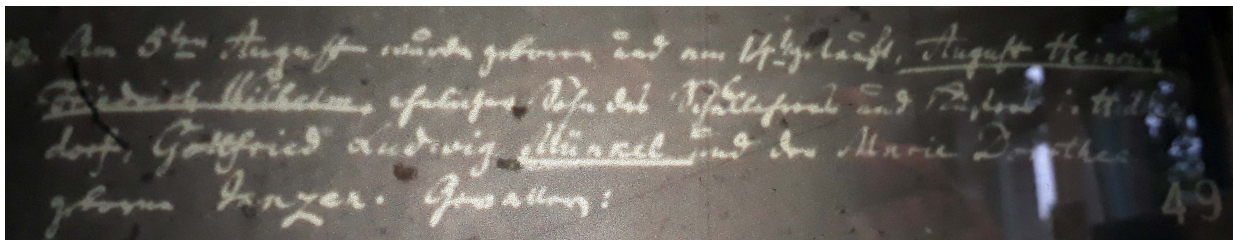 Am 5ten August wurde geboren und am 14t. getauft, August Heinrich
Friedrich Wilhelm, ehelicher Sohn des Schullehrers und Küsters
dorf, Gottfried Ludwig Münkel und der Marie Dorothee
geborne Tanzer. Gevattern:
49